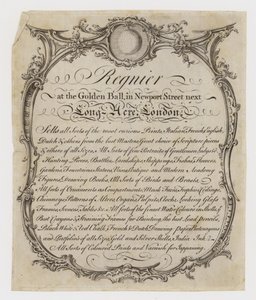 Regnier
at the Golden Ball, in Newport Street next
Long-Acre, London;
Sells all Sorts of the most curious Prints, Italian, French, English,
Dutch & others from the best Masters, Great choice of Scripture pieces
& others of all Sizes, All Sorts of fine Heads of Gentlemen, Ladys &c
Hunting Pieces, Battles, Landskips, Shippings, Fruits, Flowers,
Gardens, Fountains, Statues, Vases, Antique and Modern, Academy
Figures, Drawing Books, All Sorts of Birds and Beasts,
All Sorts of Ornaments as Compartments, Mask, Foliages, Ceilings,
Chimneys, Patterns of Altars, Organs, Pulpits, Clocks, Looking Glass
Frames, Screens, Tables &c. All Sorts of the finest Water Colours in Shells, of
Best Crayons & Straining Frames for Painting, the best Lead Pencils,
Black White & Red Chalk, French & Dutch Drawing Paper, Portcrayons
and Portfolios of all Sizes, Gold and Silver Shells, India Ink &c.
All Sorts of Coloured Prints and Varnish for Japanning.